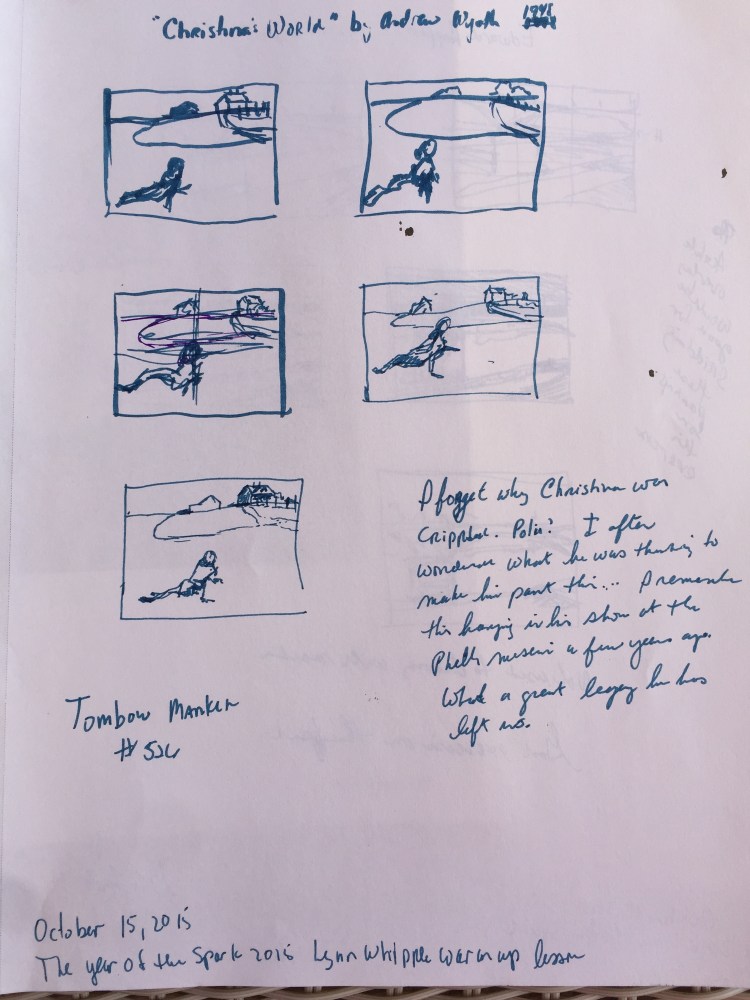 "Christina's World" by Andrew Wyeth 1948
I forget why Christina was
Crippled. Polio? I often
wondered what he was thinking to
make him paint this... I remember
this hanging in his show at the
Phila museum a few years ago.
What a great legacy he has
left us.
Tombow Marker
# 526
October 15, 2015
The year of the Spark 2015 Lynn Whipple warm up lesson